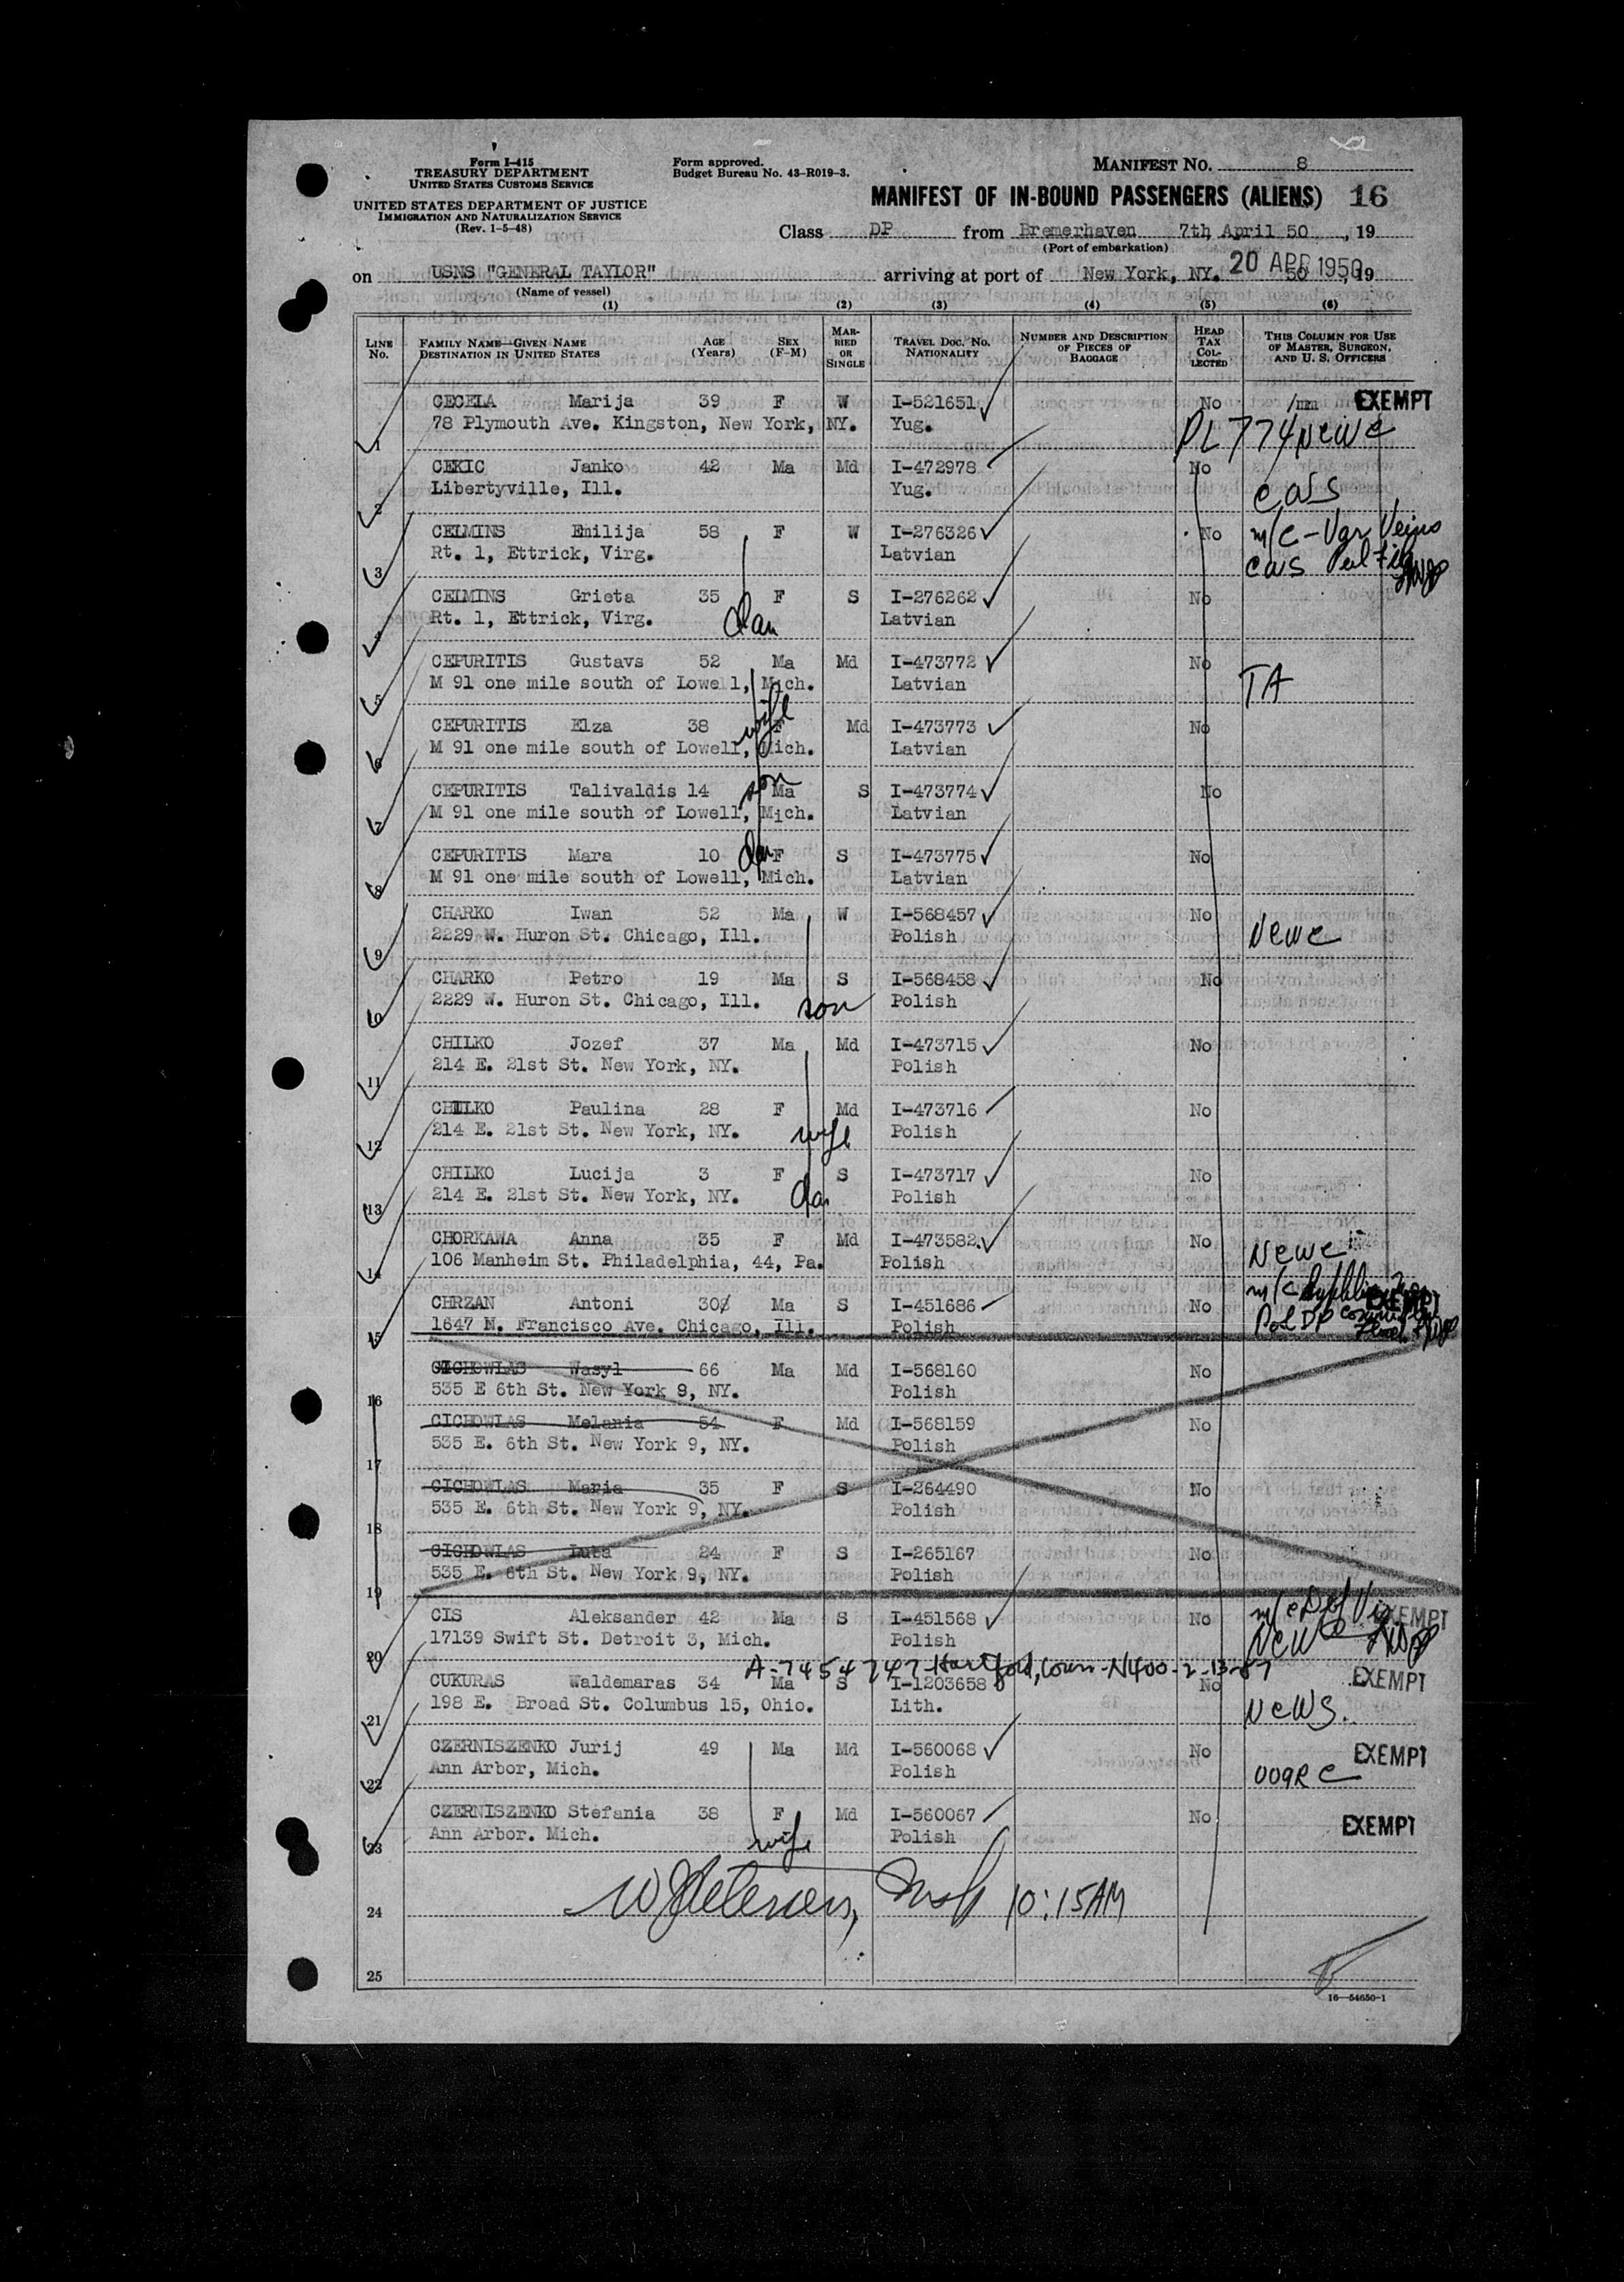 Form I-415
TREASURY DEPARTMENT
UNITED STATES CUSTOMS SERVICE
UNITED STATES DEPARTMENT OF JUSTICE
IMMIGRATION AND NATURALIZATION SERVICE
(Rev. 1-5-48)
Form approved.
Budget Bureau No. 43-R019-3.
MANIFEST NO. 8
MANIFEST OF IN-BOUND PASSENGERS (ALIENS) 16
Class DP from Bremerhaven 7th April 50, 19
(Port of embarkation)
on USNS "GENERAL TAYLOR" arriving at port of New York, NY. 20 APR 1950 50, 19
(Name of vessel)
(1) (2) (3) (4) (5) (6)
LINE No. FAMILY NAME—GIVEN NAME DESTINATION IN UNITED STATES AGE (Years) SEX (F-M) MARRIED OR SINGLE TRAVEL DOC. NO. NATIONALITY NUMBER AND DESCRIPTION OF PIECES OF BAGGAGE HEAD TAX COLLECTED THIS COLUMN FOR USE OF MASTER, SURGEON, AND U. S. OFFICERS
CECELA Marija 39 F W I-521651 No /mm EXEMPT
1 78 Plymouth Ave. Kingston, New York, NY. Yug. PL 774 NCWC
CEKIC Janko 42 Ma Md I-472978 No
2 Libertyville, Ill. Yug. CWS
CELMINS Emilija 58 F W I-276326 No m/c - Var Veins
3 Rt. 1, Ettrick, Virg. Latvian CWS
CELMINS Grieta 35 F S I-276262 No
4 Rt. 1, Ettrick, Virg. dau Latvian
CEPURITIS Gustavs 52 Ma Md I-473772 No
5 M 91 one mile south of Lowell, Mich. Latvian TA
CEPURITIS Elza 38 wife F Md I-473773 No
6 M 91 one mile south of Lowell, Mich. Latvian
CEPURITIS Talivaldis 14 son Ma S I-473774 No
7 M 91 one mile south of Lowell, Mich. Latvian
CEPURITIS Mara 10 dau F S I-473775 No
8 M 91 one mile south of Lowell, Mich. Latvian
CHARKO Iwan 52 Ma W I-568457 No
9 2229 W. Huron St. Chicago, Ill. Polish NCWC
CHARKO Petro 19 Ma S I-568458 No
10 2229 W. Huron St. Chicago, Ill. son Polish
CHILKO Jozef 37 Ma Md I-473715 No
11 214 E. 21st St. New York, NY. Polish
CHILKO Paulina 28 F Md I-473716 No
12 214 E. 21st St. New York, NY. wife Polish
CHILKO Lucija 3 F S I-473717 No
13 214 E. 21st St. New York, NY. da Polish
CHORKAWA Anna 35 F Md I-473582. No
14 106 Manheim St. Philadelphia, 44, Pa. Polish NCWC
CHRZAN Antoni 30 Ma S I-451686 No m/c EXEMPT
15 1647 N. Francisco Ave. Chicago, Ill. Polish Pol DP
CICHOWLAS Wasyl 66 Ma Md I-568160 No
16 535 E 6th St. New York 9, NY. Polish
CICHOWLAS Melania 54 F Md I-568159 No
17 535 E. 6th St. New York 9, NY. Polish
CICHOWLAS Maria 35 F S I-264490 No
18 535 E. 6th St. New York 9, NY. Polish
CICHOWLAS 24 F S I-265167 No
19 535 E. 6th St. New York 9, NY. Polish
CIS Aleksander 42 Ma S I-451568 No m/c Def Vis EXEMPT
20 17139 Swift St. Detroit 3, Mich. Polish NCWC
A-7454747 Hartford, Conn-N400-2-13-57
CUKURAS Waldemaras 34 Ma S I-1203658 No EXEMPT
21 198 E. Broad St. Columbus 15, Ohio. Lith. NCWS.
CZERNISZENKO Jurij 49 Ma Md I-560068 No EXEMPT
22 Ann Arbor, Mich. Polish
CZERNISZENKO Stefania 38 F Md I-560067 No EXEMPT
23 Ann Arbor. Mich. wife Polish
24 10:15AM
25
16—54650-1